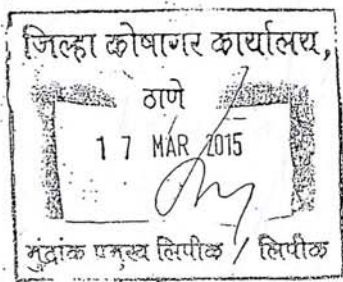 जिल्हा कोषागर कार्यालय,
ठाणे
1 7 MAR 2015
मुद्रांक प्रमुख लिपीक / लिपीक